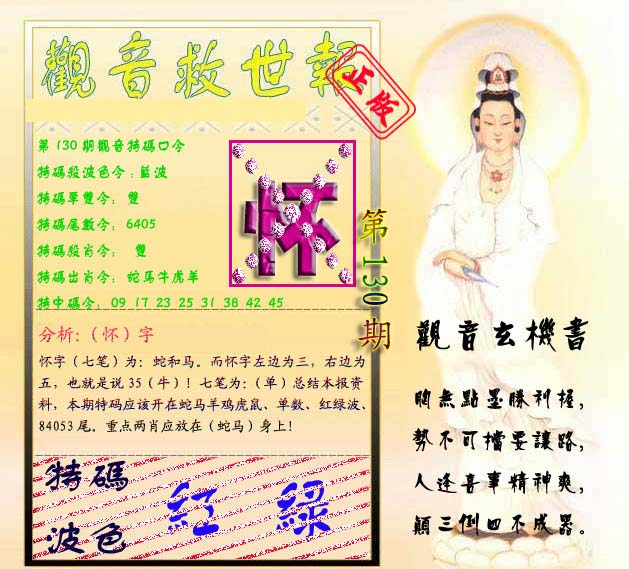 觀音救世報
正版
第130期觀音特碼口令
特碼殺波色令:藍波
特碼單雙令: 雙
特碼尾數令: 6405
特碼殺肖令: 雙
特碼出肖令: 蛇馬牛虎羊
特中碼令: 09 17 23 25 31 38 42 45
怀
第130期
分析:(怀)字
怀字(七笔)为:蛇和马。而怀字左边为三,右边为
五,也就是说35(牛)!七笔为:(单)总结本报资
料,本期特码应该开在蛇马羊鸡虎鼠、单数、红绿波、
84053尾。重点两肖应放在(蛇马)身上!
特碼
波色
紅 綠
觀音玄機書
胸無點墨勝利握,
勢不可擋要讓路,
人逢喜事精神爽,
顛三倒四不成器。